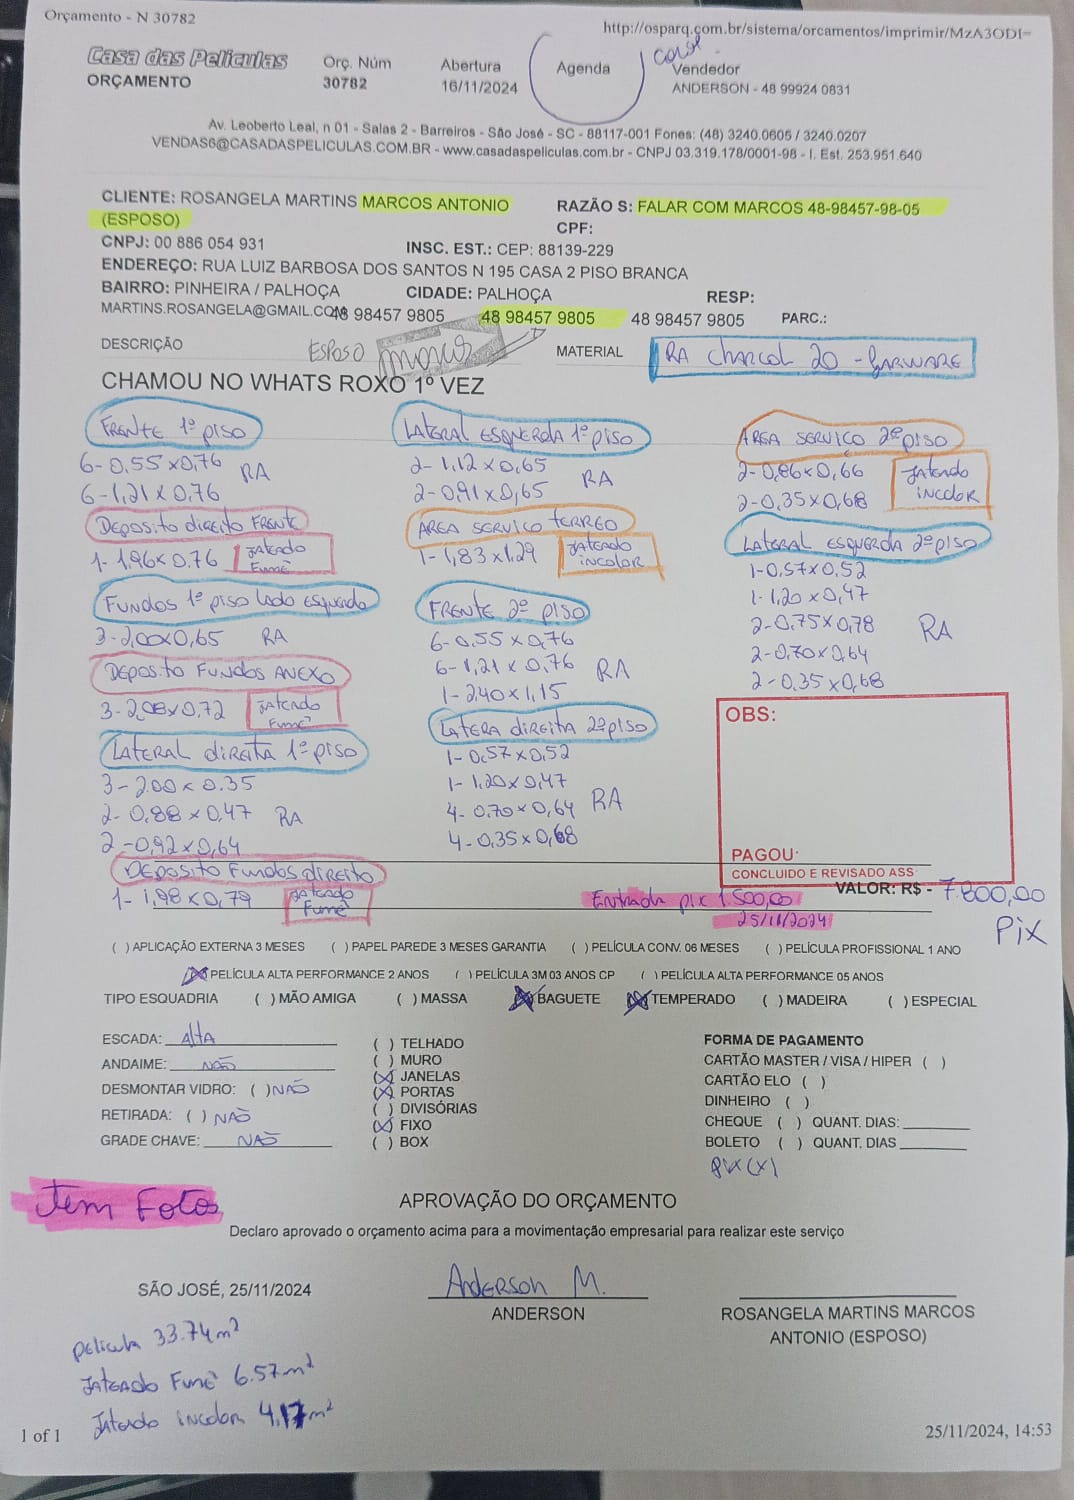 Orçamento - N 30782
http://osparq.com.br/sistema/orcamentos/imprimir/MzA3ODI=
Casa das Películas
ORÇAMENTO
Orç. Núm
30782
Abertura
16/11/2024
Agenda
Vendedor
ANDERSON - 48 99924 0831
Av. Leoberto Leal, n 01 - Salas 2 - Barreiros - São José - SC - 88117-001 Fones: (48) 3240.0605 / 3240.0207
VENDAS6@CASADASPELICULAS.COM.BR - www.casadaspeliculas.com.br - CNPJ 03.319.178/0001-98 - I. Est. 253.951.640
CLIENTE: ROSANGELA MARTINS MARCOS ANTONIO
(ESPOSO)
RAZÃO S: FALAR COM MARCOS 48-98457-98-05
CPF:
CNPJ: 00 886 054 931
INSC. EST.: CEP: 88139-229
ENDEREÇO: RUA LUIZ BARBOSA DOS SANTOS N 195 CASA 2 PISO BRANCA
BAIRRO: PINHEIRA / PALHOÇA
CIDADE: PALHOÇA
RESP:
MARTINS.ROSANGELA@GMAIL.COM
48 98457 9805
48 98457 9805
48 98457 9805
PARC.:
DESCRIÇÃO
ESPOSO
MARCOS
MATERIAL
RA charcol 20 - GARWARE
CHAMOU NO WHATS ROXO 1º VEZ
FRENTE 1º piso
6-0,55x0,76
RA
6-1,21x0,76
Deposito direito Frente
1-1,96x0.76
Jateado
Fumê
Fundos 1º piso lado esquerdo
3-2,00x0,65
RA
Deposito Fundos Anexo
3-2,08x0,72
Jateado
Fumê
LATERAL direita 1º piso
3-200x0.35
2-0,88x0,47
RA
2-0,92x0,64
Deposito Fundos direito
1-1,98x0,79
Jateado
Fumê
LATERAL ESQUERDA 1º piso
2-1,12x0,65
RA
2-0,91x0,65
AREA SERVIÇO terreo
1-1,83x1.29
Jateado
incolor
FRENTE 2º piso
6-0,55x0,76
6-1,21x0,76
RA
1-240x1,15
LATERA direita 2º piso
1-0,57x0,52
1-1,20x0,47
4-0,70x0,64
RA
4-0,35x0,68
AREA SERVIÇO 2º piso
2-0,86x0,66
2-0,35x0,68
Jateado
incolor
LATERAL ESQUERDA 2º piso
1-0,57x0,52
1-1,20x0,47
2-0,75x0,78
RA
2-0,70x0,64
2-0,35x0,68
OBS:
PAGOU:
CONCLUIDO E REVISADO ASS
Entrada pix 1.500,00
25/11/2024
VALOR: R$ - 7.800,00
PIX
( ) APLICAÇÃO EXTERNA 3 MESES ( ) PAPEL PAREDE 3 MESES GARANTIA ( ) PELÍCULA CONV. 06 MESES ( ) PELÍCULA PROFISSIONAL 1 ANO
(X) PELÍCULA ALTA PERFORMANCE 2 ANOS ( ) PELÍCULA 3M 03 ANOS CP ( ) PELÍCULA ALTA PERFORMANCE 05 ANOS
TIPO ESQUADRIA ( ) MÃO AMIGA ( ) MASSA (X) BAGUETE (X) TEMPERADO ( ) MADEIRA ( ) ESPECIAL
ESCADA: Alta
ANDAIME: NÃO
DESMONTAR VIDRO: ( ) NÃO
RETIRADA: ( ) NÃO
GRADE CHAVE: NÃO
( ) TELHADO
( ) MURO
(X) JANELAS
(X) PORTAS
( ) DIVISÓRIAS
(X) FIXO
( ) BOX
FORMA DE PAGAMENTO
CARTÃO MASTER / VISA / HIPER ( )
CARTÃO ELO ( )
DINHEIRO ( )
CHEQUE ( ) QUANT. DIAS:
BOLETO ( ) QUANT. DIAS
PIX (X)
Tem Fotos
APROVAÇÃO DO ORÇAMENTO
Declaro aprovado o orçamento acima para a movimentação empresarial para realizar este serviço
SÃO JOSÉ, 25/11/2024
Anderson M.
ANDERSON
ROSANGELA MARTINS MARCOS
ANTONIO (ESPOSO)
pelicula 33.74m²
Jateado Fumê 6.57m²
Jateado incolor 4.17m²
1 of 1
25/11/2024, 14:53